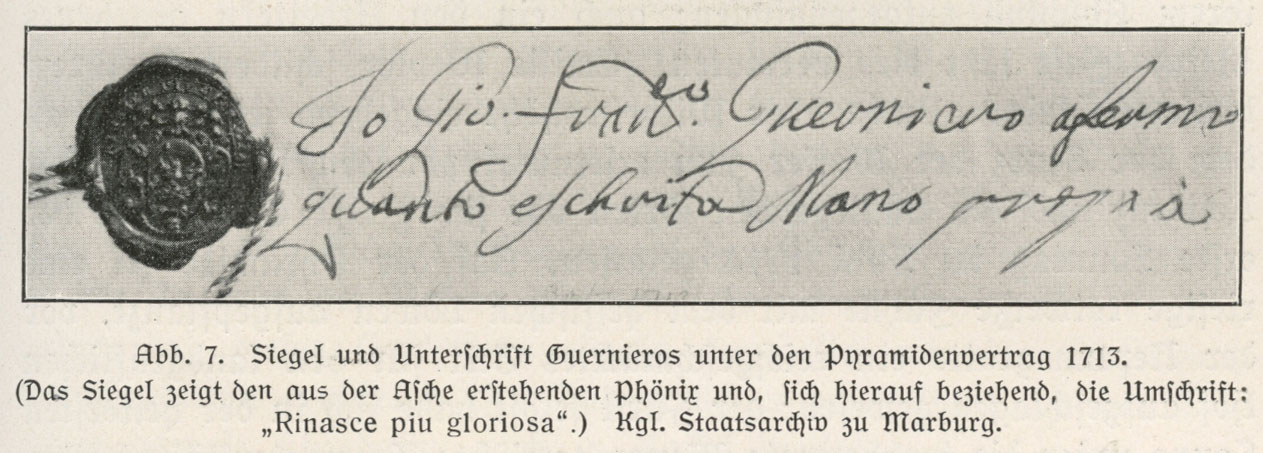 Io Gio. Franco. Guerniero afermo
quanto eschrito Mano propria
Abb. 7. Siegel und Unterschrift Guernieros unter den Pyramidenvertrag 1713.
(Das Siegel zeigt den aus der Asche erstehenden Phönix und, sich hierauf beziehend, die Umschrift:
„Rinasce piu gloriosa“.) Kgl. Staatsarchiv zu Marburg.